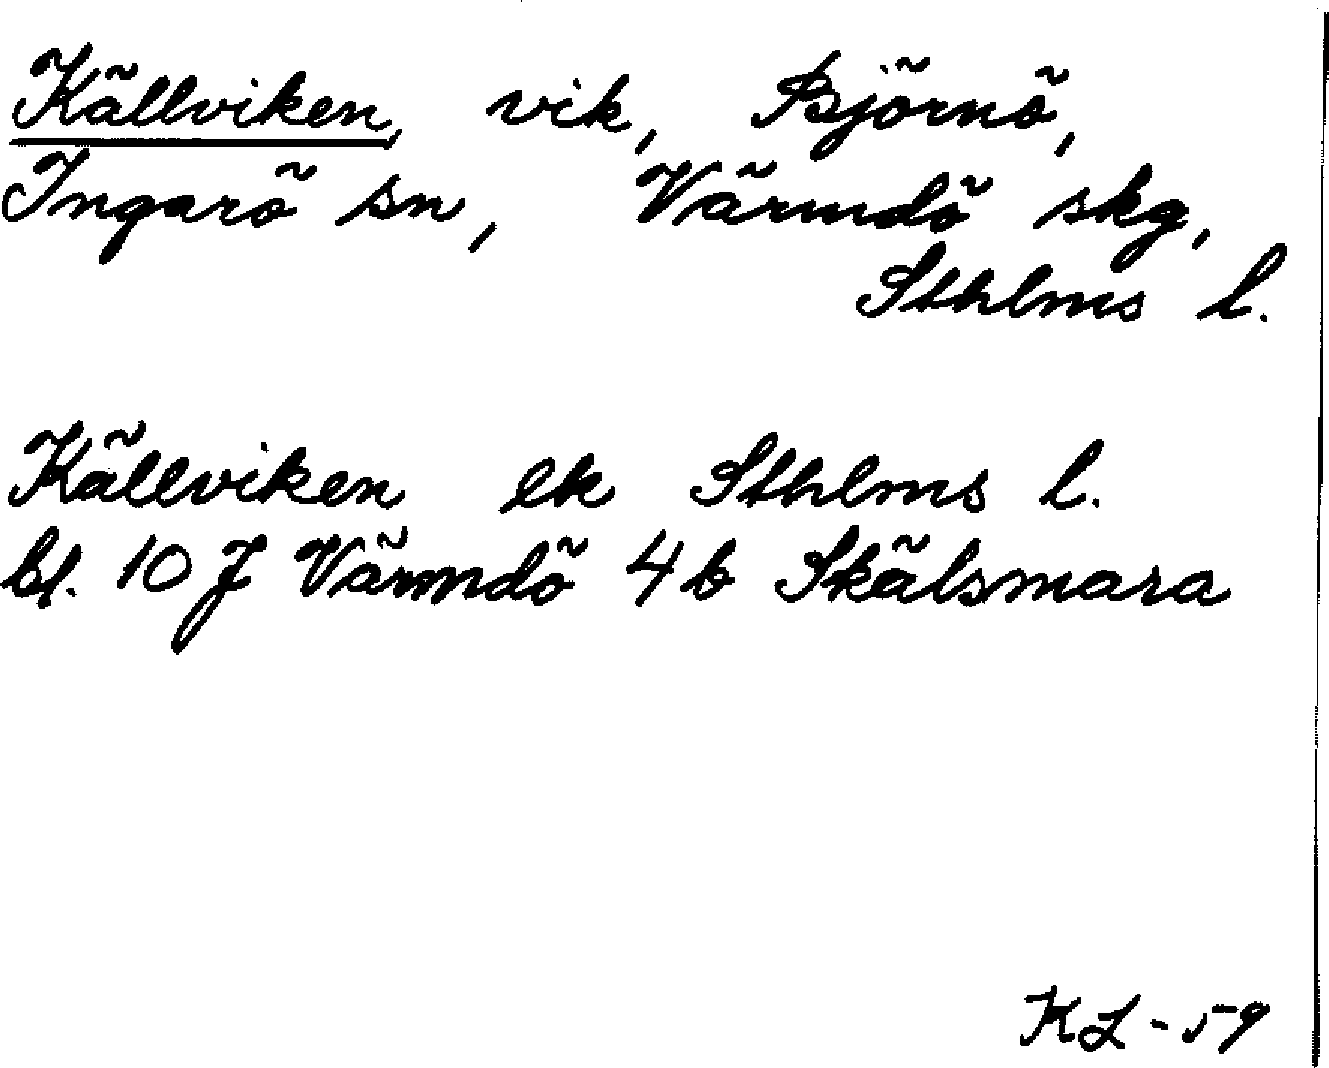 Källviken, vik, Björnö,
Ingarö sn, Värmdö skg,
Sthlms l.
Källviken ek Sthlms l.
bl. 10 J Värmdö 4 b Skälsmara
KL-59